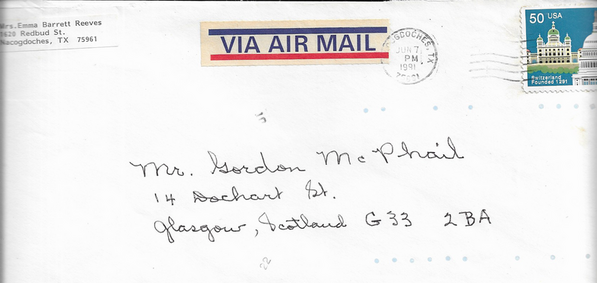 Mrs. Emma Barrett Reeves
1620 Redbud St.
Nacogdoches, TX 75961
VIA AIR MAIL
NACOGDOCHES, TX
JUN 7,
PM
1991
50 USA
Switzerland
Founded 1291
Mr. Gordon McPhail
14 Dochart St.
Glasgow, Scotland G33 2BA
22